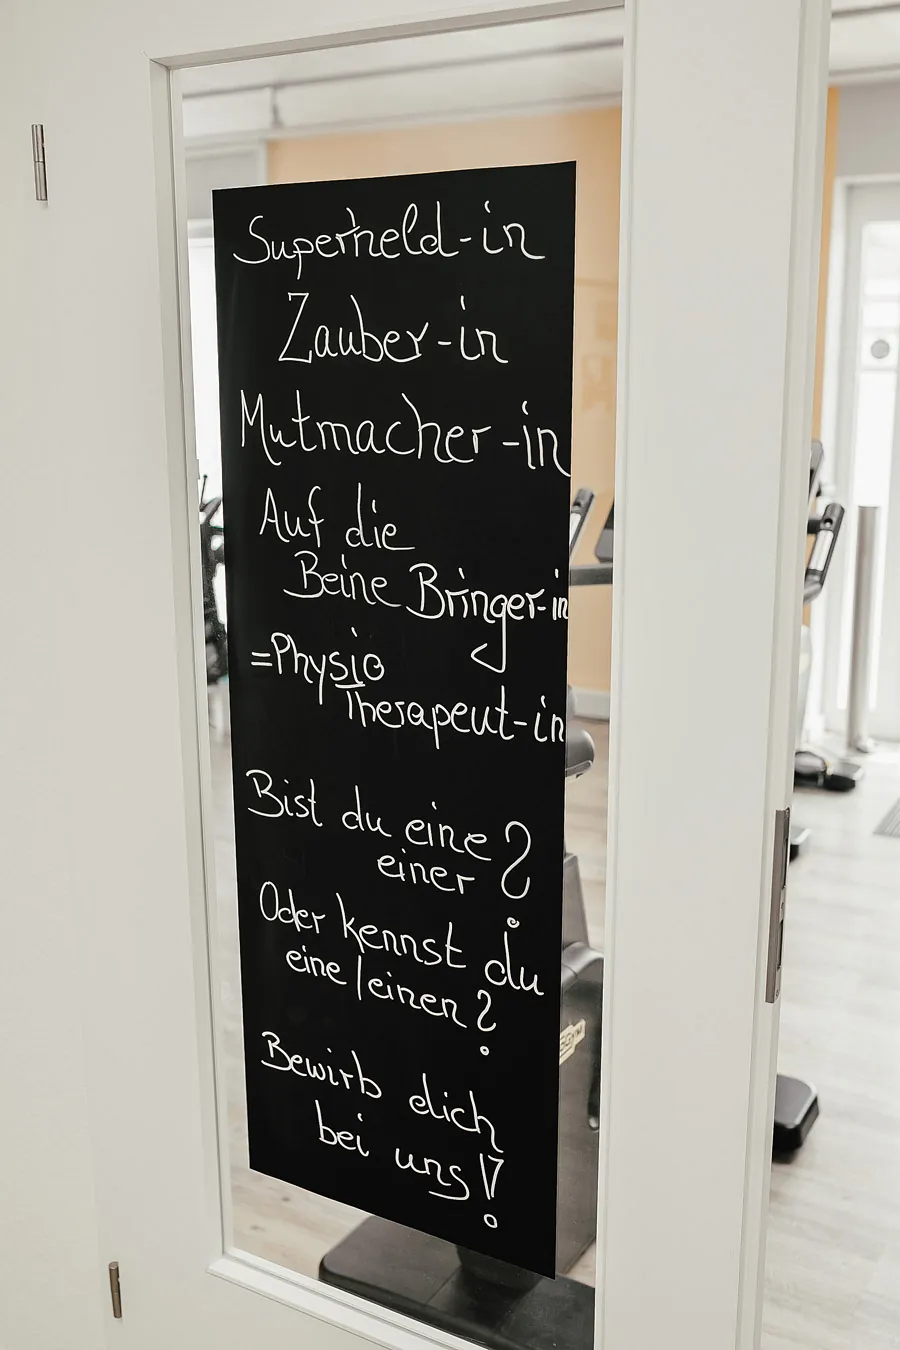 Superheld-in
Zauber-in
Mutmacher-in
Auf die
Beine Bringer-in
=Physio
Therapeut-in
Bist du eine
einer ?
Oder kennst du
eine/einen?
Bewirb dich
bei uns!